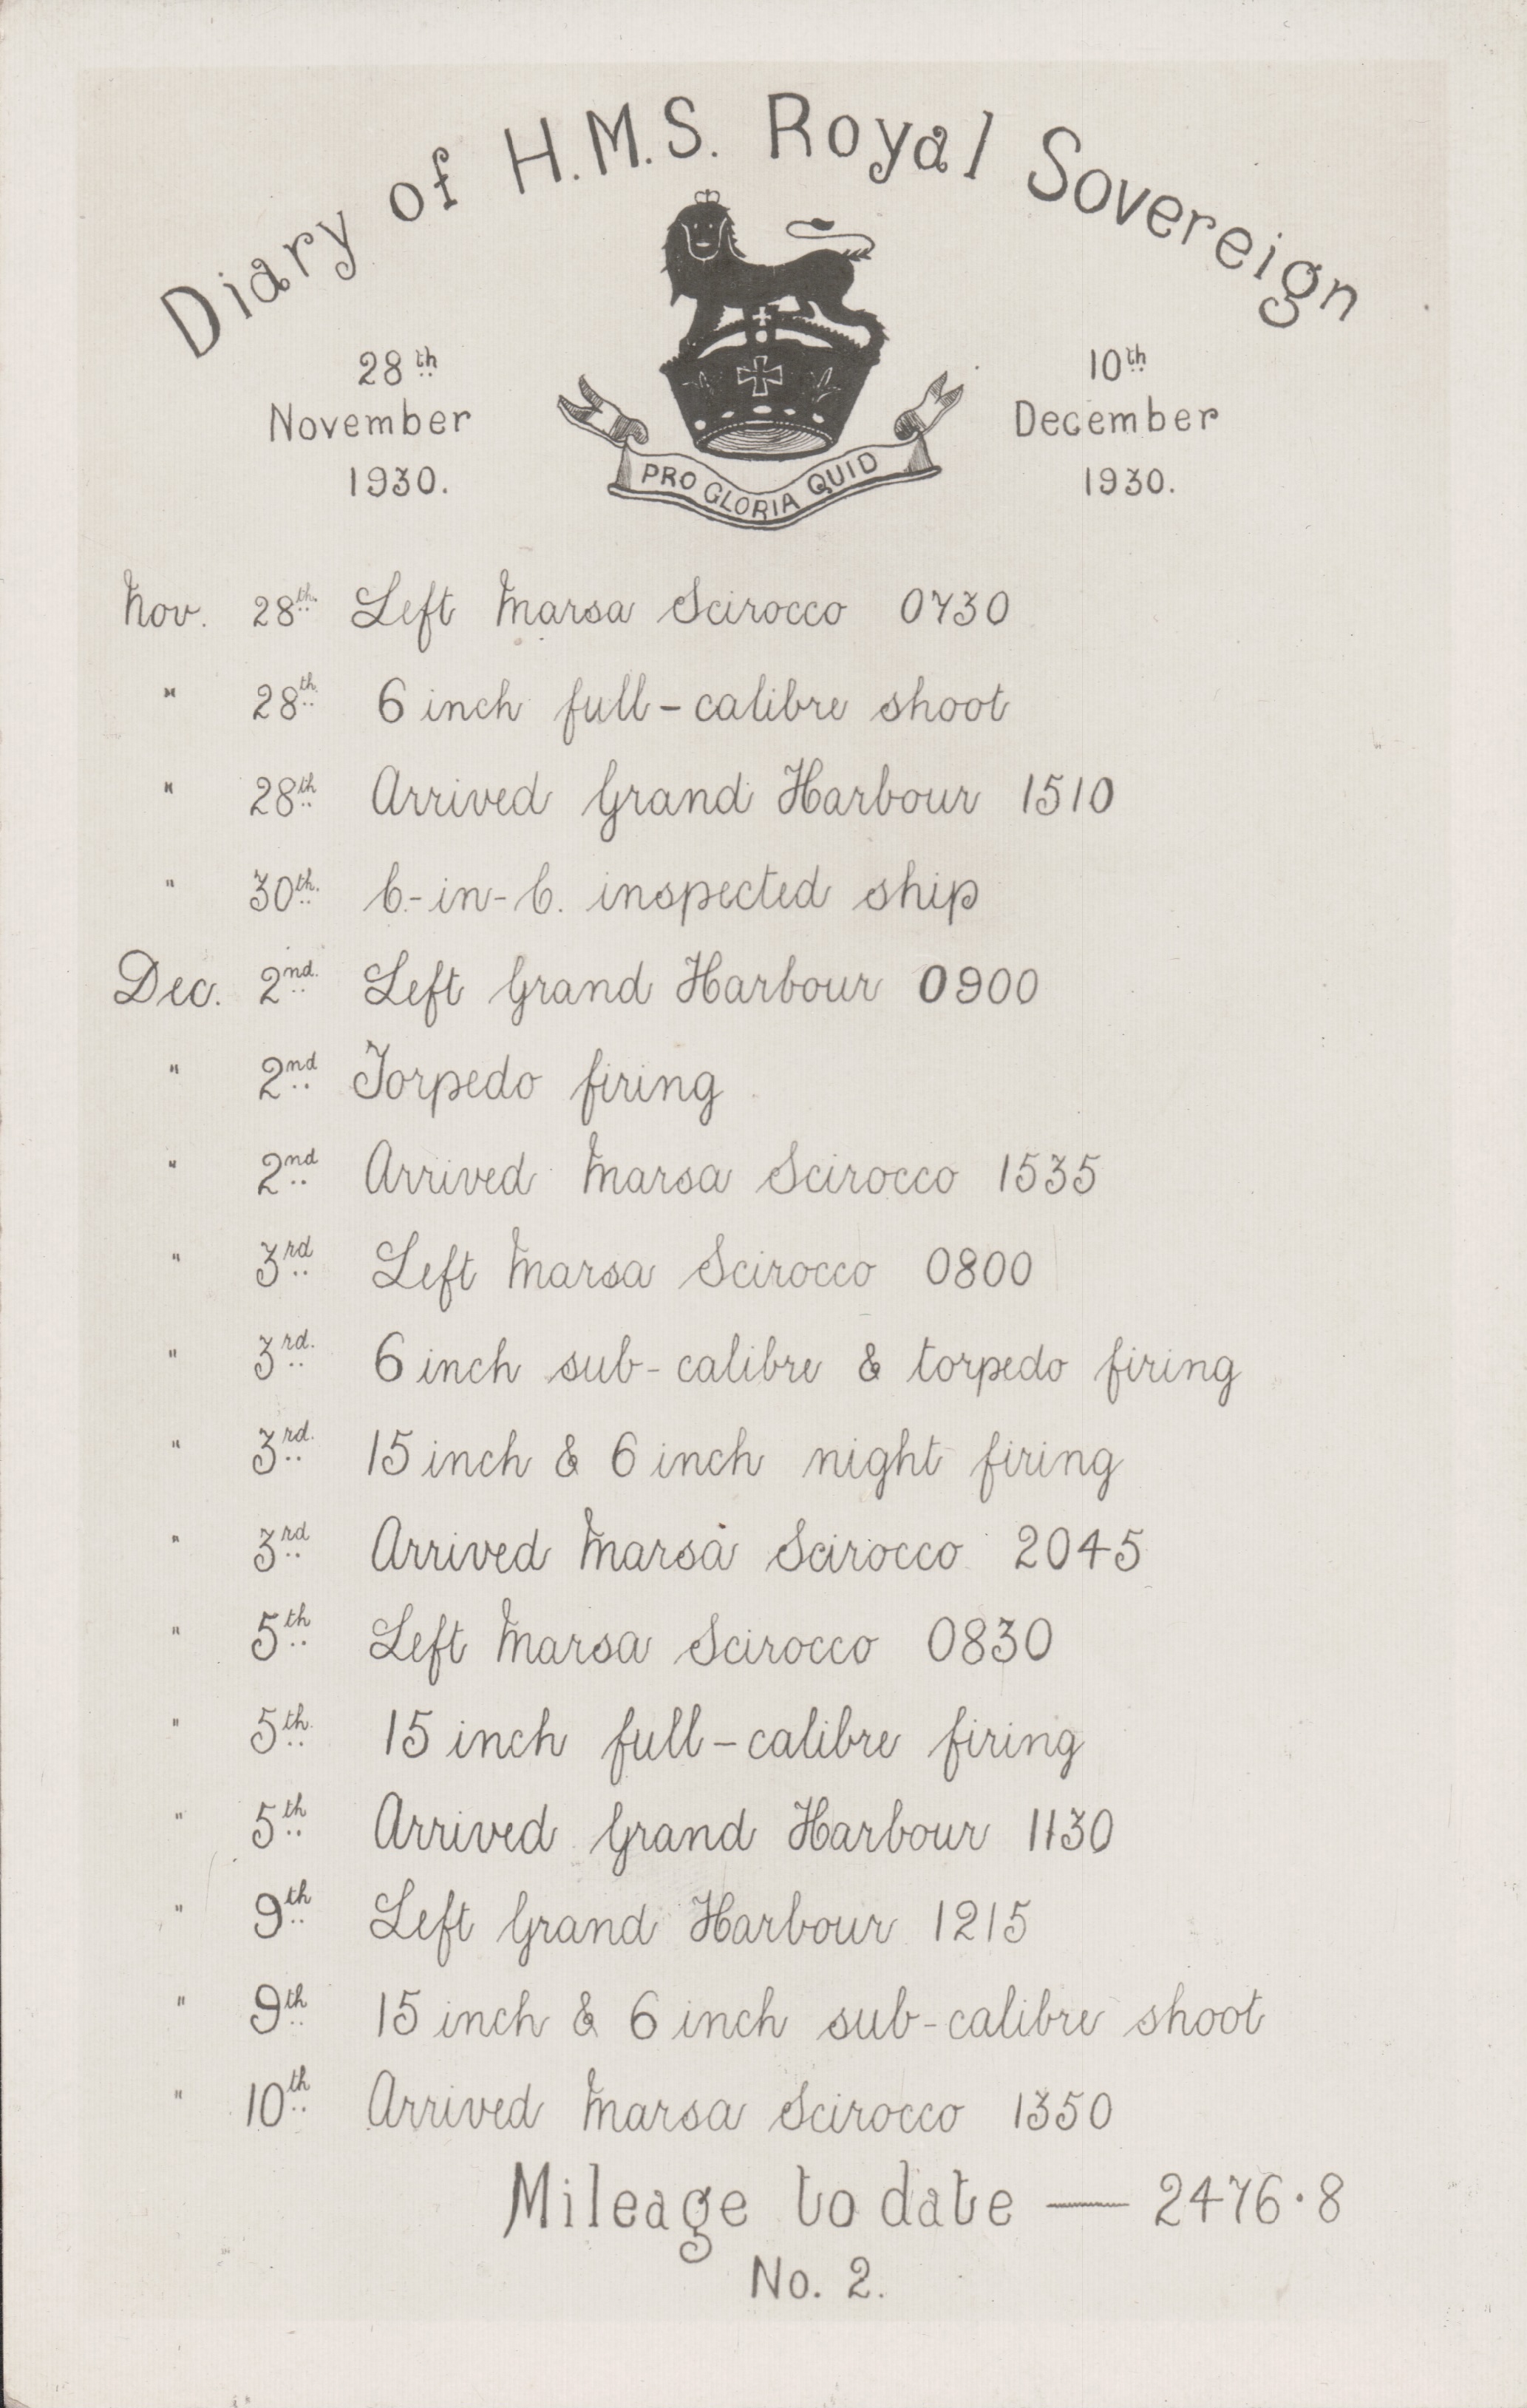 Diary of H.M.S. Royal Sovereign
28th
November
1930.
10th
December
1930.
PRO GLORIA QUID
Nov. 28th. Left Marsa Scirocco 0730
" 28th. 6 inch full-calibre shoot
" 28th Arrived Grand Harbour 1510
" 30th. C.-in-C. inspected ship
Dec. 2nd. Left Grand Harbour 0900
" 2nd Torpedo firing
" 2nd Arrived Marsa Scirocco 1535
" 3rd Left Marsa Scirocco 0800
" 3rd. 6 inch sub-calibre & torpedo firing
" 3rd. 15 inch & 6 inch night firing
" 3rd Arrived Marsa Scirocco 2045
" 5th Left Marsa Scirocco 0830
" 5th. 15 inch full-calibre firing
" 5th Arrived Grand Harbour 1130
" 9th Left Grand Harbour 1215
" 9th 15 inch & 6 inch sub-calibre shoot
" 10th Arrived Marsa Scirocco 1350
Mileage to date — 2476·8
No. 2.